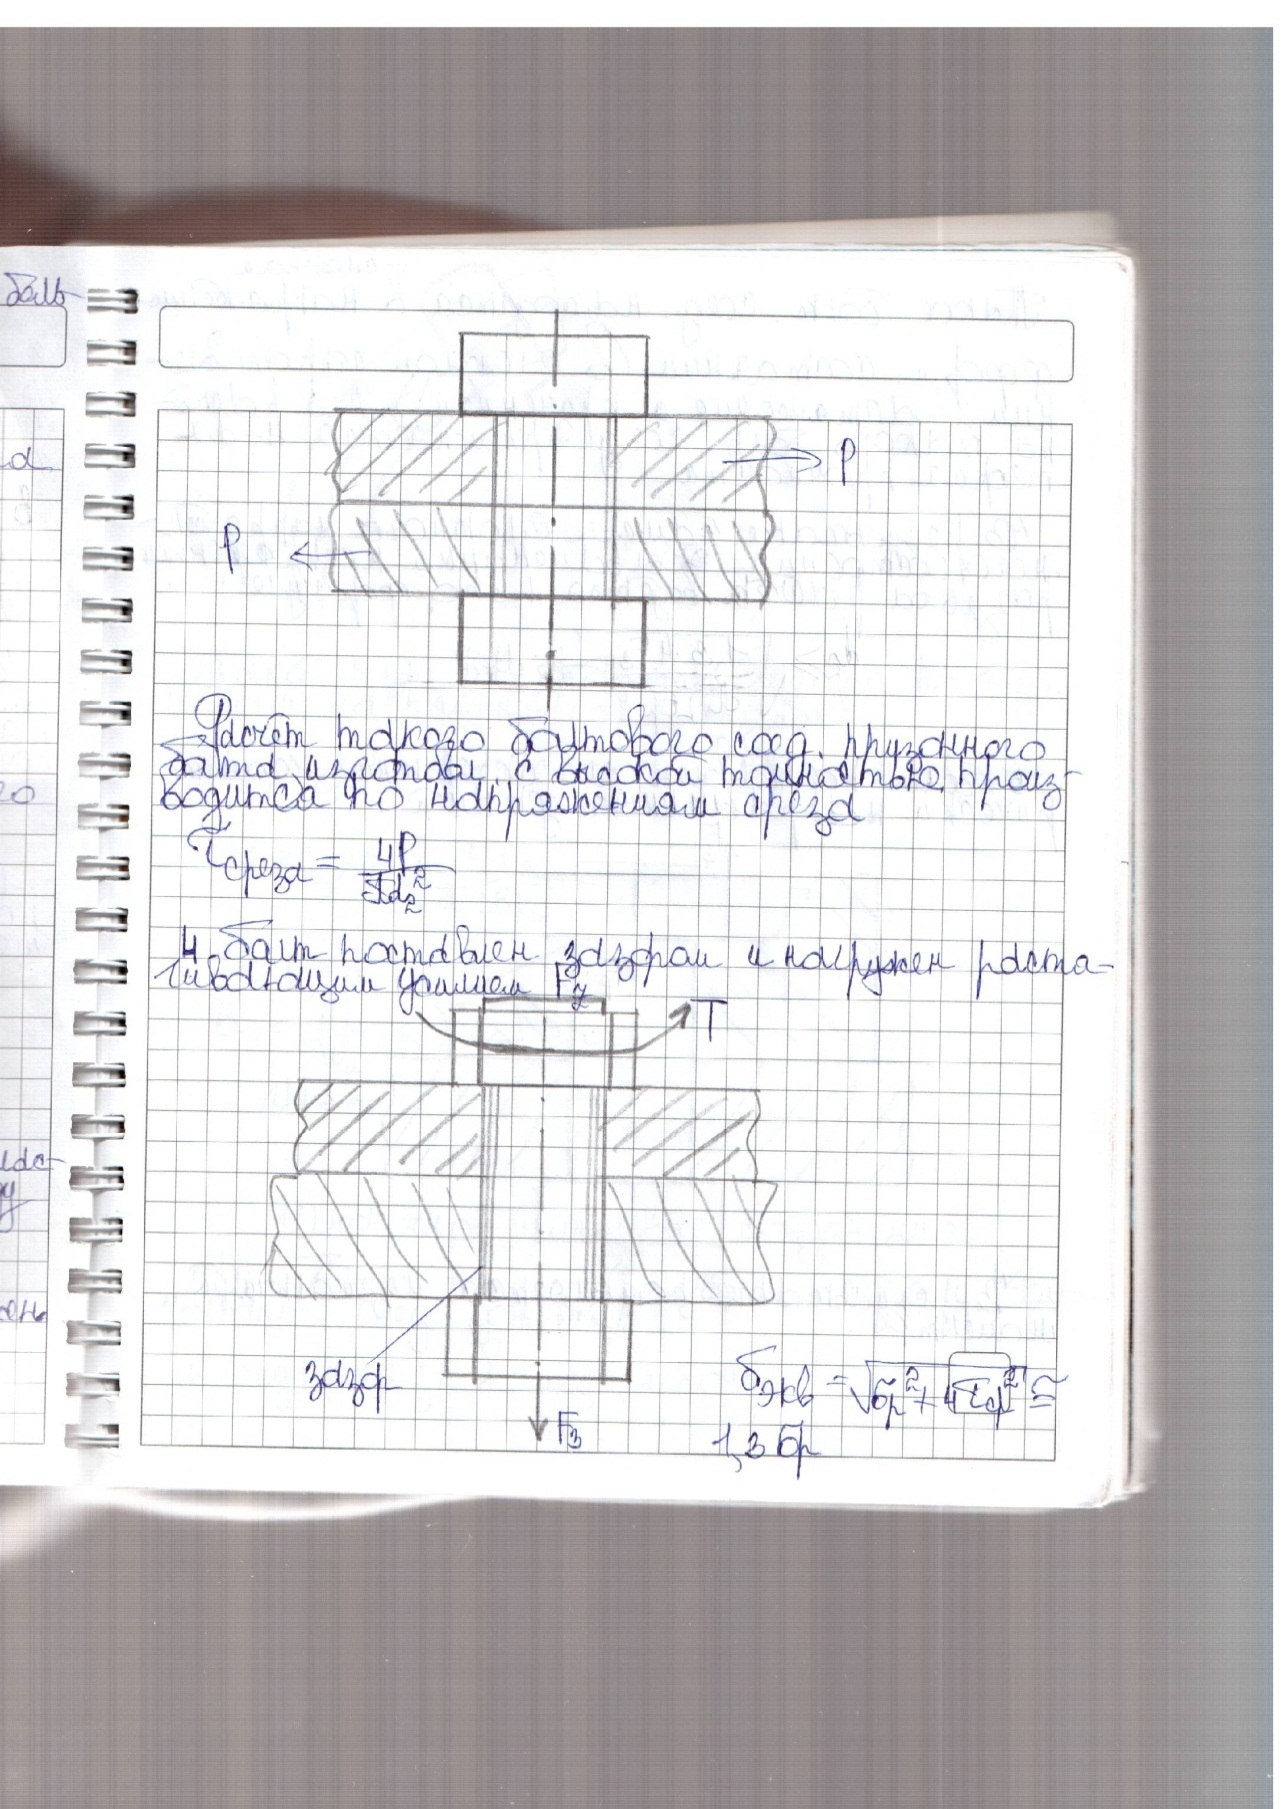 боль-
P
P
Расчёт такого болтового соед. груз`онного
болта изготовл. с высокой точностью произ-
водится по напряжениям среза
τ среза = 4P / πd₂²
4. болт поставлен зазором и нагружен растя-
гивающим усилием F
T
зазор
F₃
σэкв = √σр² + 4τср² ≅
1,3 σр